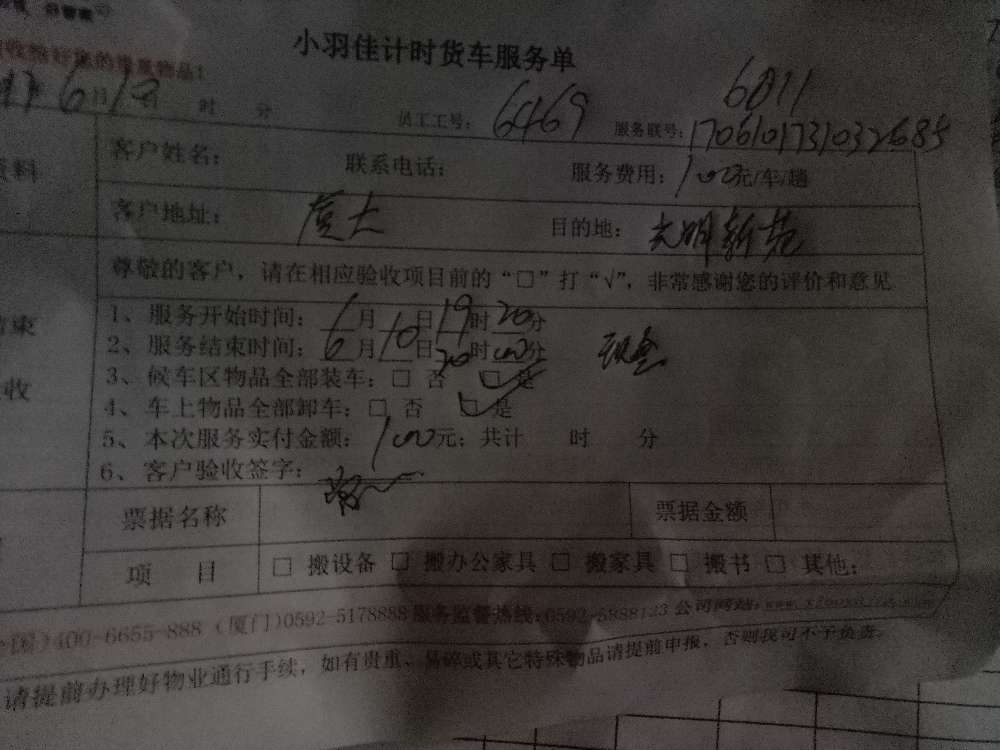 小羽佳计时货车服务单
收拾好您的贵重物品!
6月10日 时 分 员工工号: 6469 服务联号: 1706101731032685
6811
资料
客户姓名: 联系电话: 服务费用: 100元/车/趟
客户地址: 厦大 目的地: 光明新苑
尊敬的客户，请在相应验收项目前的“□”打“√”，非常感谢您的评价和意见
1、服务开始时间: 6月10日19时20分
2、服务结束时间: 6月10日20时00分 现金
3、候车区物品全部装车: □ 否 □ 是
4、车上物品全部卸车: □ 否 □ 是
5、本次服务实付金额: 100元; 共计 时 分
6、客户验收签字:
结束
收
票据名称 票据金额
项 目 □ 搬设备 □ 搬办公家具 □ 搬家具 □ 搬书 □ 其他:
400-6655-888 (厦门)0592-5178888 服务监督热线:0592-5888123 公司网站:
请提前办理好物业通行手续，如有贵重、易碎或其它特殊物品请提前申报，否则我司不予负责。